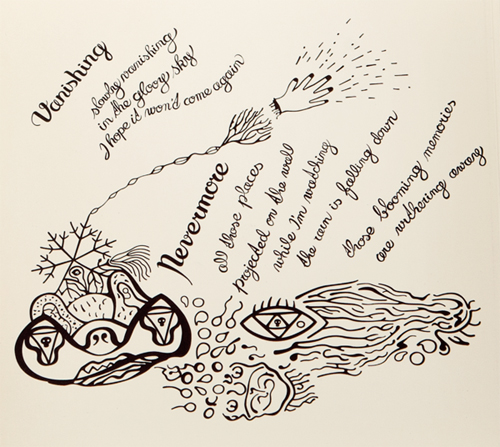 Vanishing
slowly vanishing
in the gloory sky
I hope it won'd come again
Nevermore
all those places
projected on the wall
while I'm watching
the rain is falling down
those blooming memories
are withering away